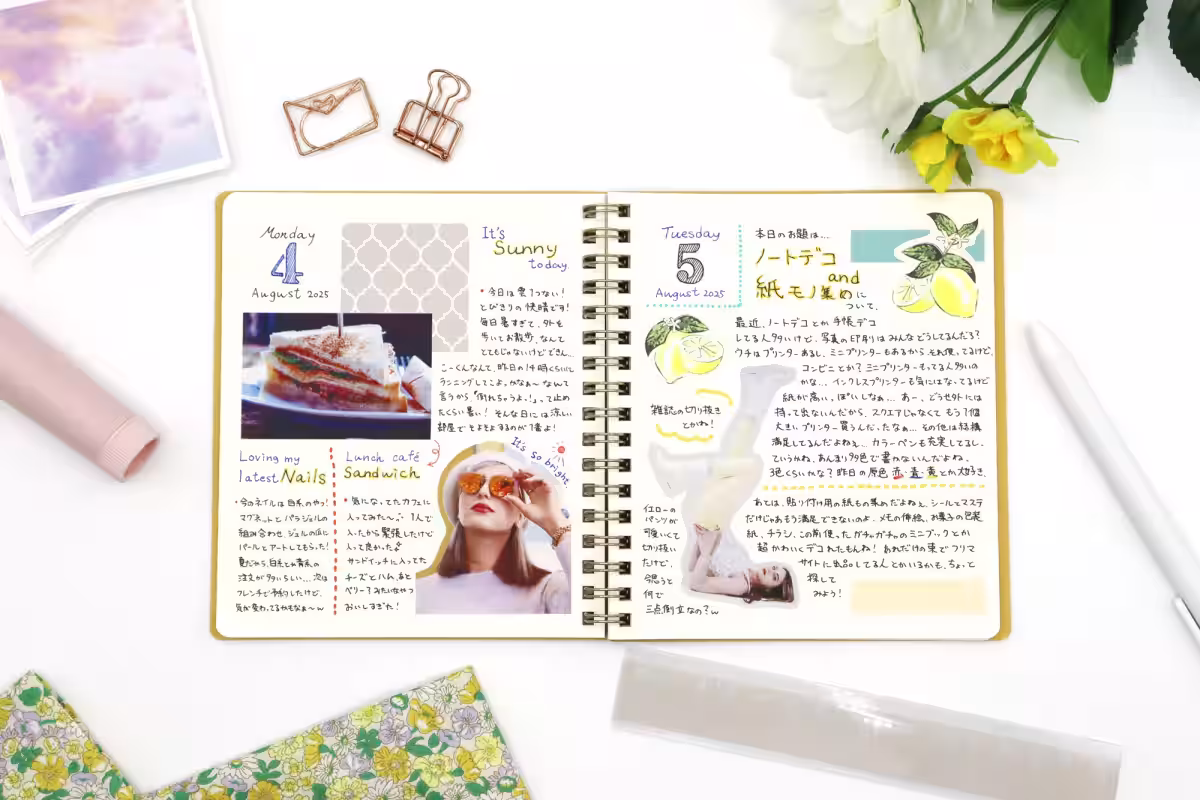 Monday
4
August 2025
It's
Sunny
today.
・今日は雲1つない！
とびきりの快晴です！
毎日暑すぎて、外を
歩いてお散歩、なんて
とてもじゃないけどできん…
こーくんなんて、昨日の14時くらいに
ランニングしてこよっかなぁ〜なんて
言うから、「倒れちゃうよ…！」って止め
たくらい暑い！そんな日には涼しい
部屋でそよそよするのが1番よ！
Loving my
latest Nails
・今のネイルは白系のやつ！
マグネットとパラジェルの
組み合わせ、ジェルの上に
パールとアートしてもらった！
夏だから、白系とか青系の
注文が多いらしい…次は
フレンチで予約したけど、
気が変わってるかもなぁ〜w
Lunch café
Sandwich
・気になってたカフェに
入ってみた〜 1人で
入ったから緊張したけど
入って良かった
サンドイッチに入ってた
チーズとハム、あと
ベリー？みたいなやつ
おいしすぎた！
It's so bright
Tuesday
5
August 2025
本日のお題は…
ノートデコ
and
紙モノ集めに
ついて。
最近、ノートデコとか手帳デコ
してる人多いけど、写真の印刷はみんなどうしてるんだろ？
ウチはプリンターあるし、ミニプリンターもあるから、それ使ってるけど、
コンビニとか？ミニプリンターもってる人多いの
かな…インクレスプリンターも気にはなってるけど
紙が高い、っぽいしなぁ…あー、どうせ外には
持って出ないんだから、スクエアじゃなくてもう1個
大きいプリンター買うんだったなぁ…その他は結構
満足してるんだよねぇ…カラーペンも充実してるし。
ていうかね、あんまり多色で書かないんだよね。
3色くらいかな？昨日の原色 赤・青・黄とか大好き。
雑誌の切り抜き
とかね！
イエローの
パンツが
可愛いくて
切り抜い
たけど、
今思うと
何で
三点倒立なの？w
あとは、貼り付け用の紙もの集めだよねぇ、シールとマステ
だけじゃあもう満足できないのよ。メモの挿絵、お菓子の包装
紙、チラシ、この前使ったガチャガチャのミニブックとか
超かわいくデコれたもんね！あれだけの束でフリマ
サイトに出品してる人とかいるかも、ちょっと
探して
みよう！